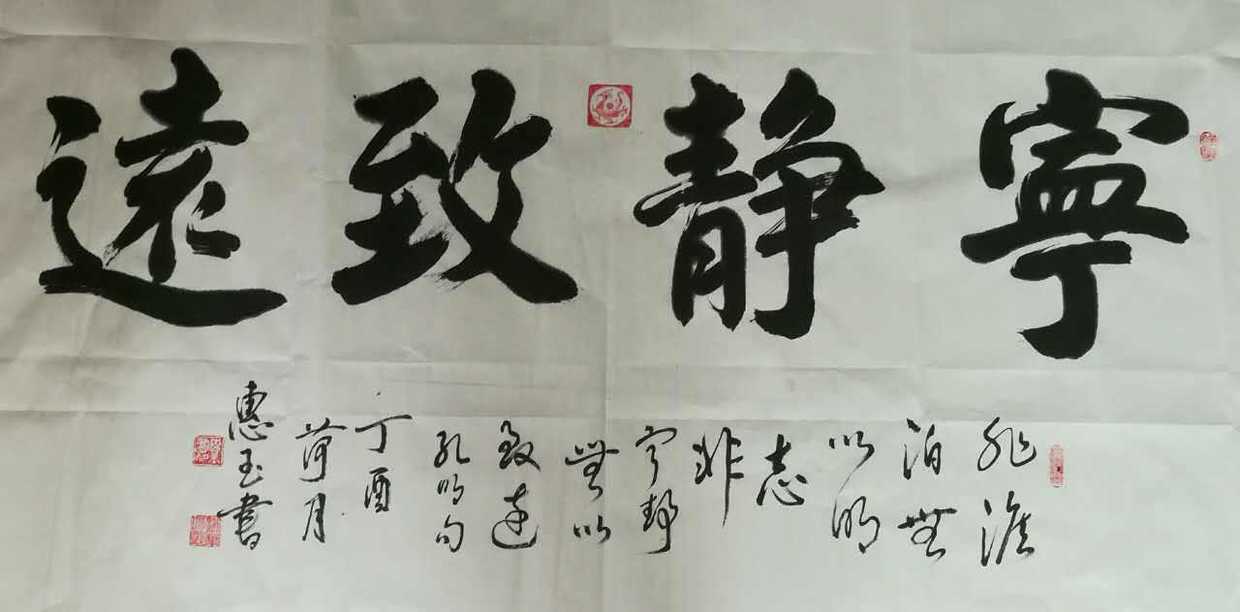 寧靜致遠
非澹
泊無
以明
志
非
寧靜
無以
致遠
孔明句
丁酉
荷月
惠玉書